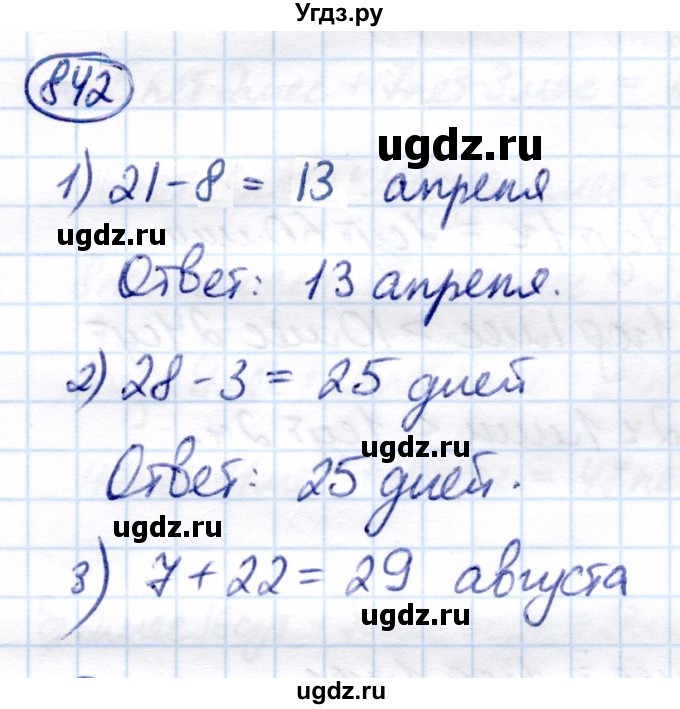 Угдз.ру
842
ugdz.ru
1) 21 - 8 = 13 апреля
ugdz.ru
Ответ: 13 апреля.
2) 28 - 3 = 25 дней
ugdz.ru
Ответ: 25 дней.
ugdz.ru
3) 7 + 22 = 29 августа
ugdz.ru
ugdz.ru